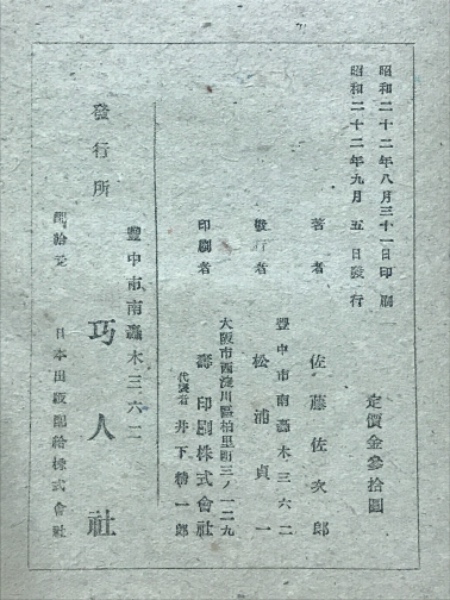 昭和二十二年八月三十一日印刷
昭和二十二年九月五日發行
定價金參拾圓
著者 佐藤佐次郎
豐中市南轟木三六二
發行者 松浦貞一
大阪市西淀川區柏里町三ノ一二九
印刷者 壽印刷株式會社
代表者 井下精一郎
豐中市南轟木三六二
發行所 巧人社
配給元 日本出版配給株式會社